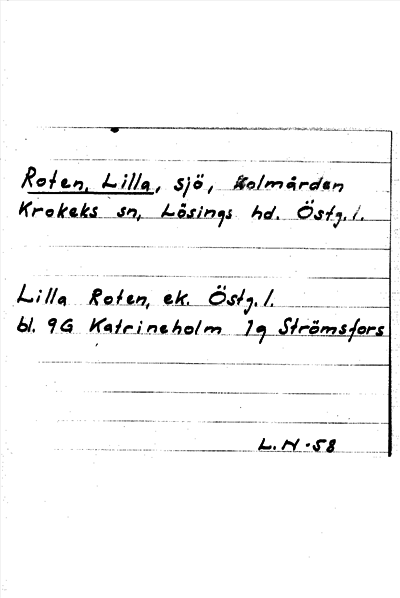 Roten, Lilla, sjö, Kolmården
Krokeks sn, Lösings hd. Östg.l.
Lilla Roten, ek. Östg.l.
bl. 9G Katrineholm 1g Strömsfors
L.N -58